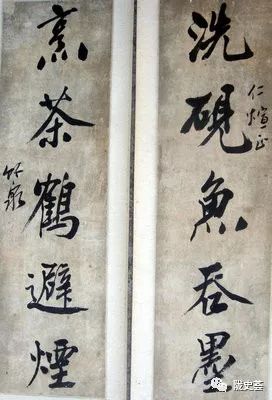 洗硯魚吞墨
仁煊正
烹茶鶴避煙
竹泉
陇史荟